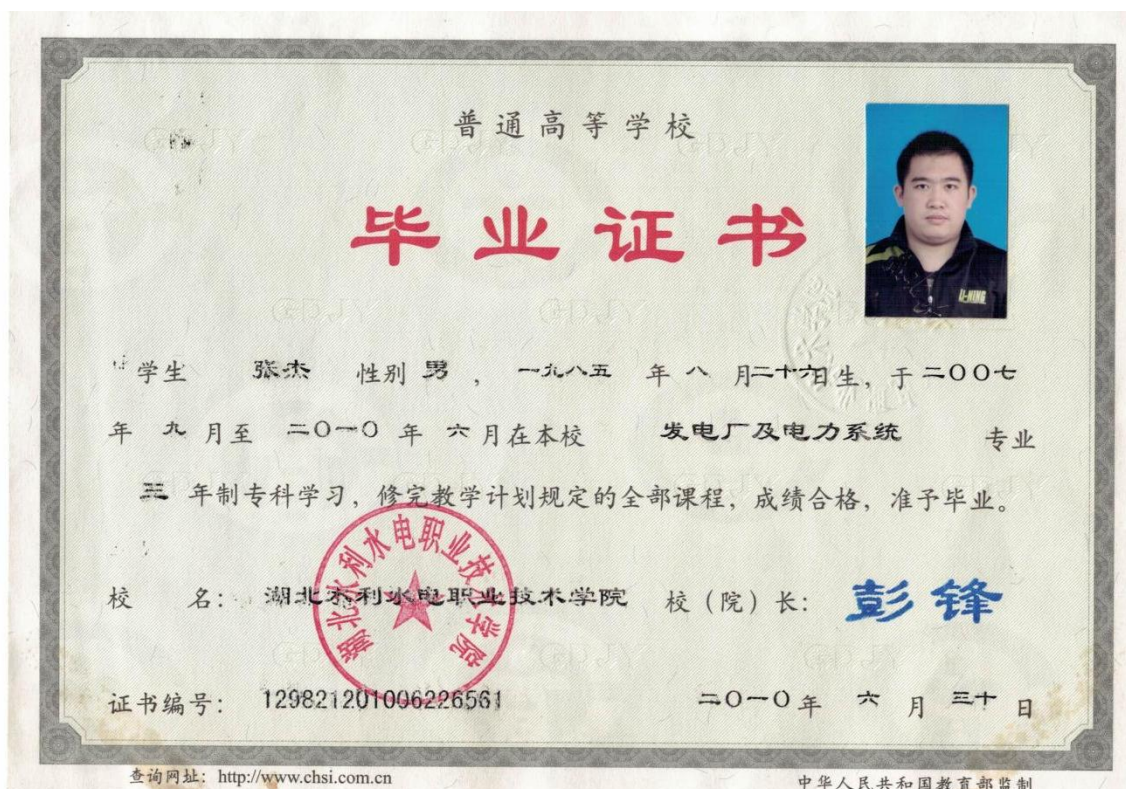 普通高等学校
毕业证书
LI-NING
学生 张杰 性别 男 , 一九八五 年 八 月二十六日生, 于 二00七
年 九 月至 二0一0 年 六 月在本校 发电厂及电力系统 专业
三 年制专科学习, 修完教学计划规定的全部课程, 成绩合格, 准予毕业。
湖北水利水电职业技术学院
校 名: 湖北水利水电职业技术学院 校 (院) 长: 彭锋
证书编号: 129821201006226561 二0一0 年 六 月 三十 日
查询网址: http://www.chsi.com.cn 中华人民共和国教育部监制